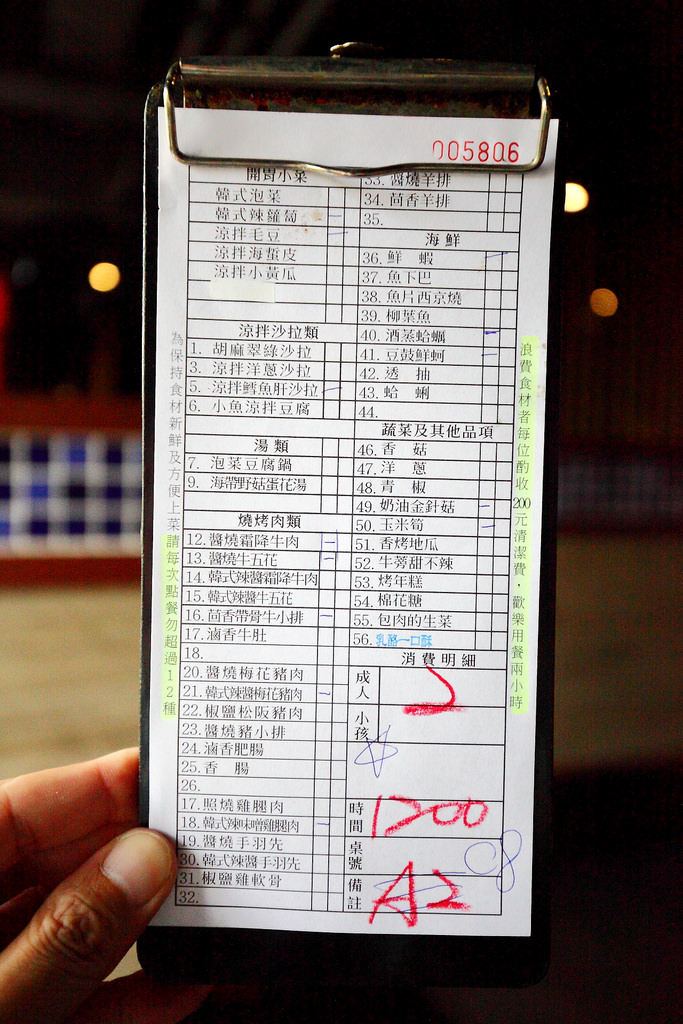 005806
開胃小菜
韓式泡菜
韓式辣蘿蔔
涼拌毛豆
涼拌海蜇皮
涼拌小黃瓜
涼拌沙拉類
1. 胡麻翠綠沙拉
3. 涼拌洋蔥沙拉
5. 涼拌鱈魚肝沙拉
6. 小魚涼拌豆腐
湯類
7. 泡菜豆腐鍋
9. 海帶野菇蛋花湯
燒烤肉類
12. 醬燒霜降牛肉
13. 醬燒牛五花
14. 韓式辣醬霜降牛肉
15. 韓式辣醬牛五花
16. 茴香帶骨牛小排
17. 滷香牛肚
18.
20. 醬燒梅花豬肉
21. 韓式辣醬梅花豬肉
22. 椒鹽松阪豬肉
23. 醬燒豬小排
24. 滷香肥腸
25. 香腸
26.
17. 照燒雞腿肉
18. 韓式辣味噌雞腿肉
19. 醬燒手羽先
30. 韓式辣醬手羽先
31. 椒鹽雞軟骨
32.
33. 醬燒羊排
34. 茴香羊排
35.
海鮮
36. 鮮蝦
37. 魚下巴
38. 魚片西京燒
39. 柳葉魚
40. 酒蒸蛤蠣
41. 豆鼓鮮蚵
42. 透抽
43. 蛤蜊
44.
蔬菜及其他品項
46. 香菇
47. 洋蔥
48. 青椒
49. 奶油金針菇
50. 玉米筍
51. 香烤地瓜
52. 牛蒡甜不辣
53. 烤年糕
54. 棉花糖
55. 包肉的生菜
56. 乳酪一口酥
消費明細
成人 2
小孩
時間 1200
桌號
備註 A2
為保持食材新鮮及方便上菜請每次點餐勿超過12種
浪費食材者每位酌收200元清潔費．歡樂用餐兩小時